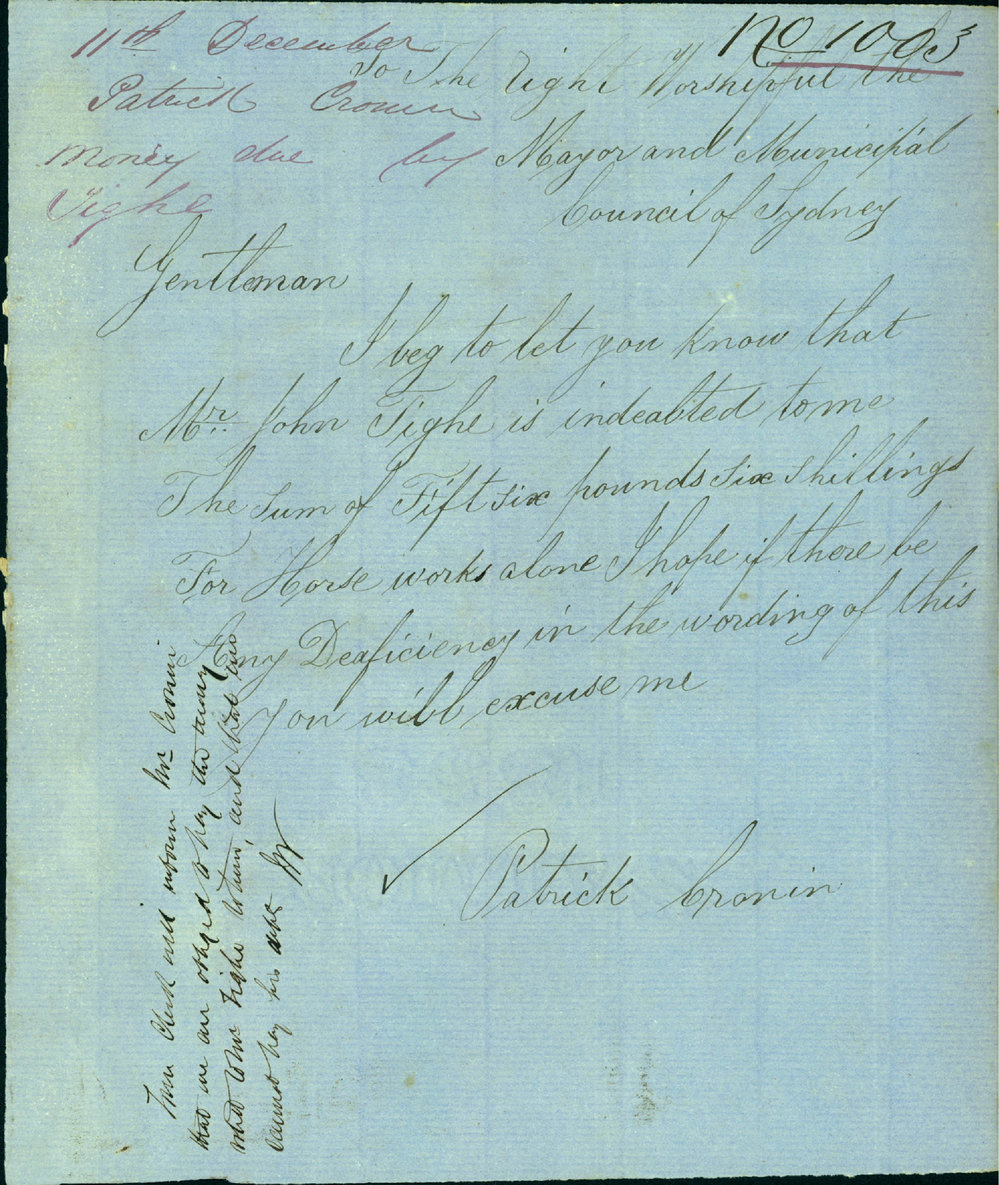 No 1003
11th December
Patrick Cronin
money due by
Tighe
To The right Worshipful the
Mayor and Municipal
Council of Sydney
Gentleman
I beg to let you know that
Mr. John Tighe is indeabted to me
The sum of Fift six pounds six shillings
For Horse works alone I hope if there be
Any Deaficiency in the wording of this
you will excuse me
Patrick Cronin
Town Clerk will inform Mr Cronin
that we are obliged to pay the money
to Mr Tighe and that we
cannot pay his debts